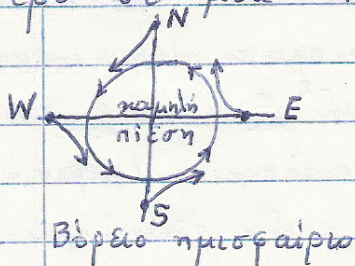 N
W
χαμηλή
πίεση
E
S
Βόρειο ημισφαίριο